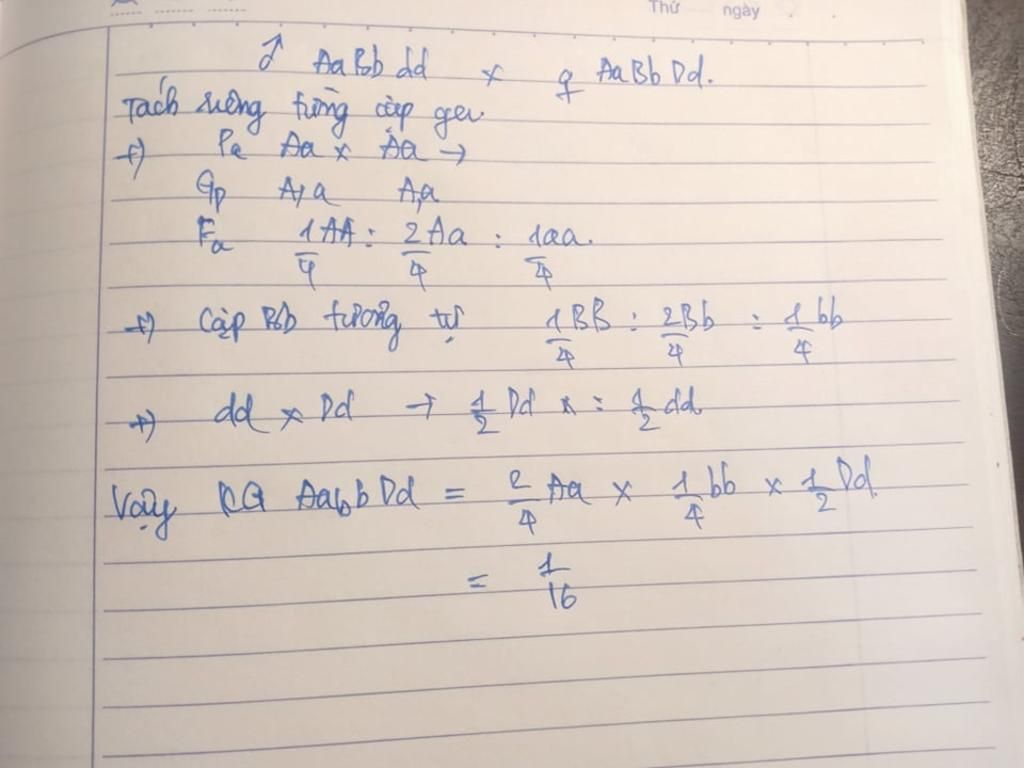 Thứ ngày
♂ AaBb dd x ♀ AaBb Dd.
Tách riêng từng cặp gen
+) Pa Aa x Aa →
Gp A,a A,a
Fa 1/4 AA : 2/4 Aa : 1/4 aa.
+) Cặp Bb tương tự 1/4 BB : 2/4 Bb : 1/4 bb
+) dd x Dd → 1/2 Dd x : 1/2 dd
Vậy KG AabbDd = 2/4 Aa x 1/4 bb x 1/2 Dd.
= 1/16